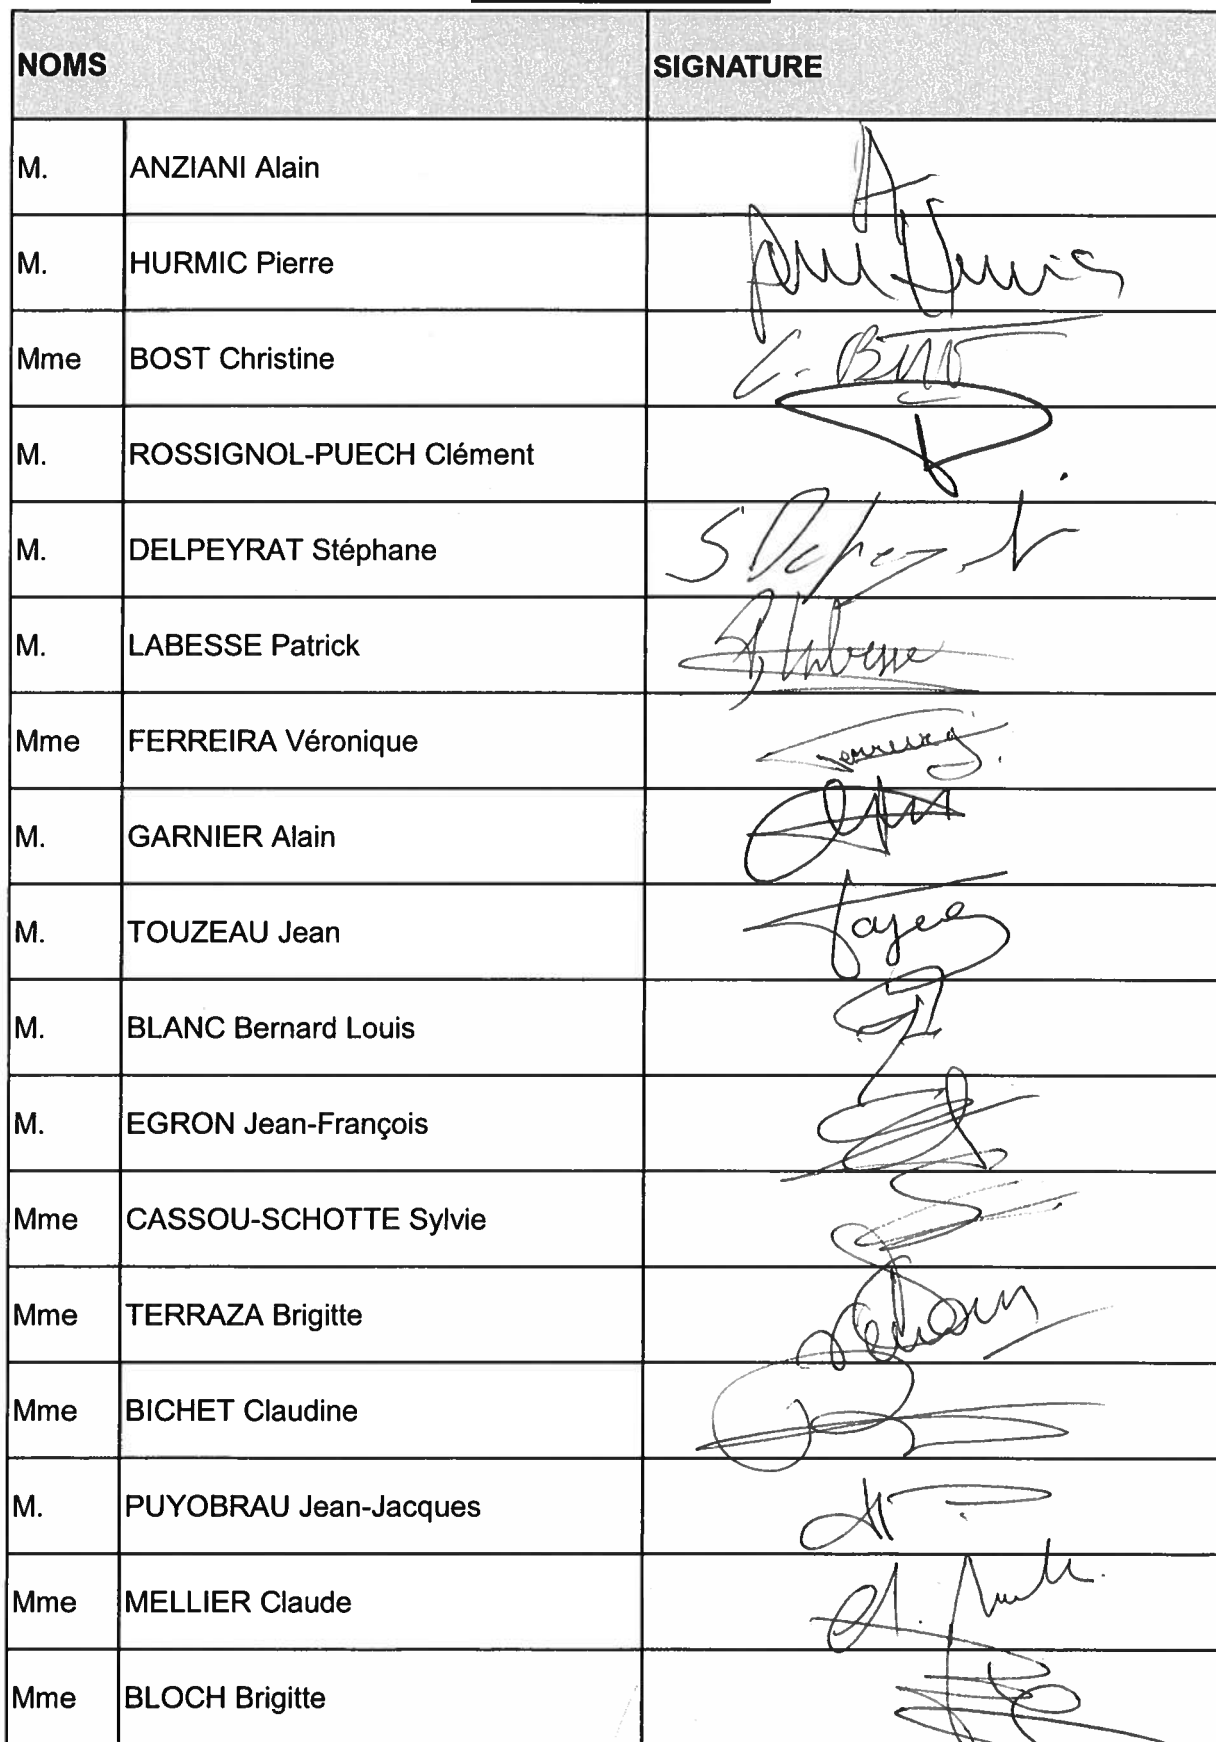 NOMS SIGNATURE
M. ANZIANI Alain
M. HURMIC Pierre
Mme BOST Christine
M. ROSSIGNOL-PUECH Clément
M. DELPEYRAT Stéphane
M. LABESSE Patrick
Mme FERREIRA Véronique
M. GARNIER Alain
M. TOUZEAU Jean
M. BLANC Bernard Louis
M. EGRON Jean-François
Mme CASSOU-SCHOTTE Sylvie
Mme TERRAZA Brigitte
Mme BICHET Claudine
M. PUYOBRAU Jean-Jacques
Mme MELLIER Claude
Mme BLOCH Brigitte